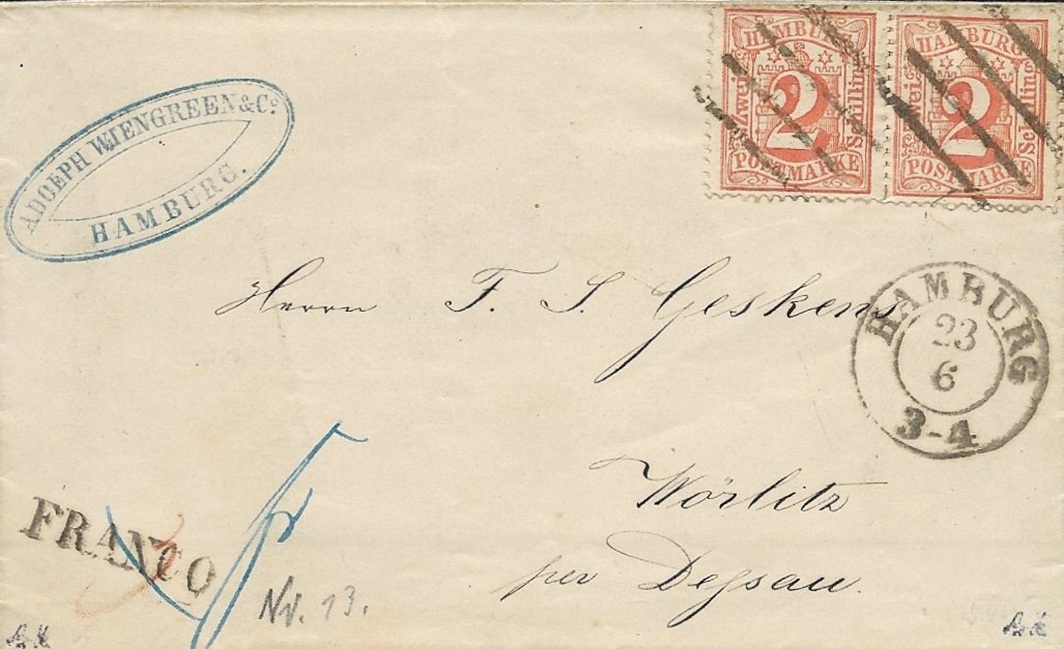 HAMBURG
Zwei
2
Schilling
POSTMARKE
HAMBURG
Zwei
2
Schilling
POSTMARKE
ADOLPH WIENGREEN & Co.
HAMBURG.
Herrn F. S. Geskens
HAMBURG
23
6
3-4
Wörlitz
per Deſsau.
FRANCO
No. 13.